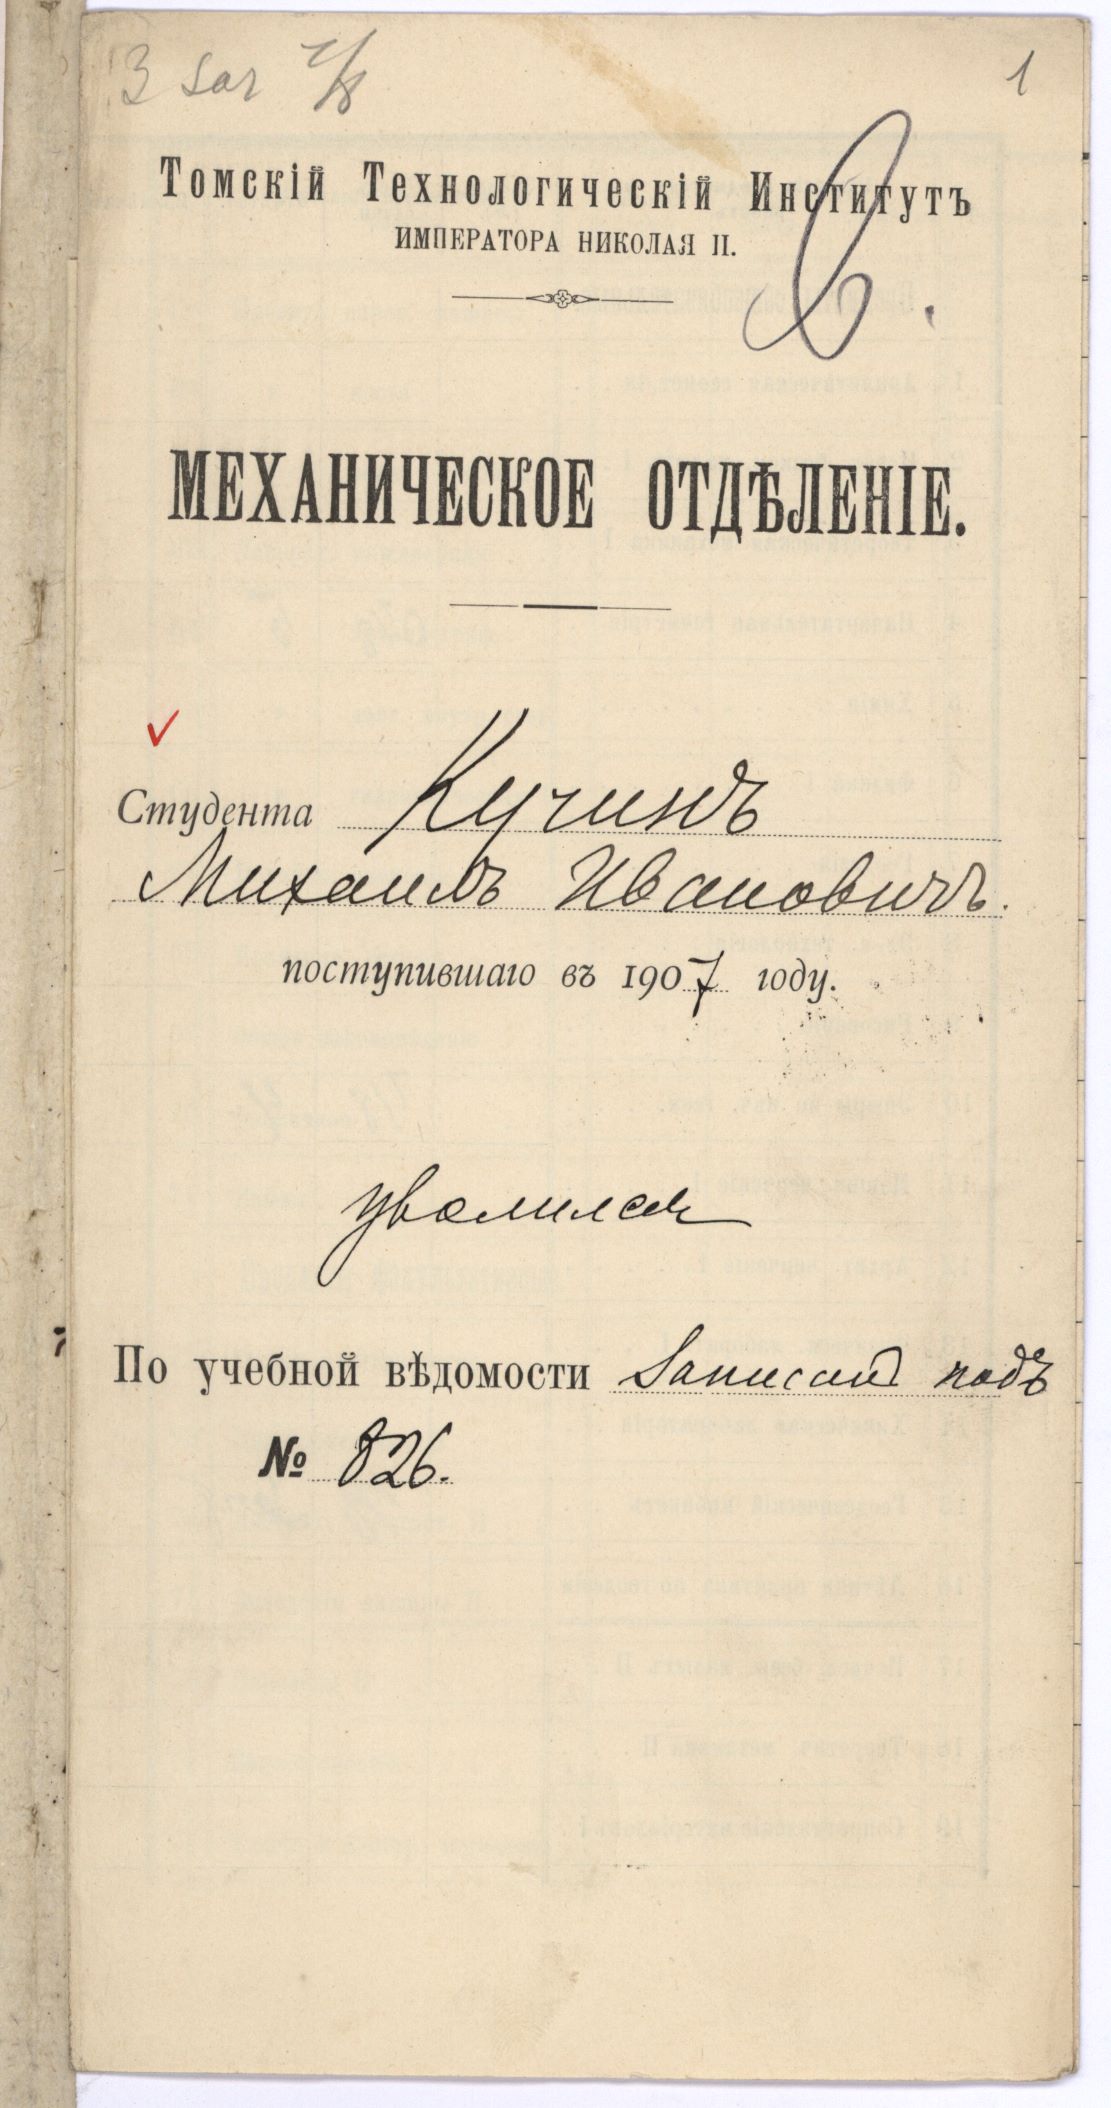 3 зач
1
Томскій Технологическій Институтъ
ИМПЕРАТОРА НИКОЛАЯ II.
МЕХАНИЧЕСКОЕ ОТДѢЛЕНІЕ.
Студента Кучинъ
Михаилъ Ивановичъ.
поступившаго въ 1907 году.
уволился
По учебной вѣдомости записан подъ
№ 826.